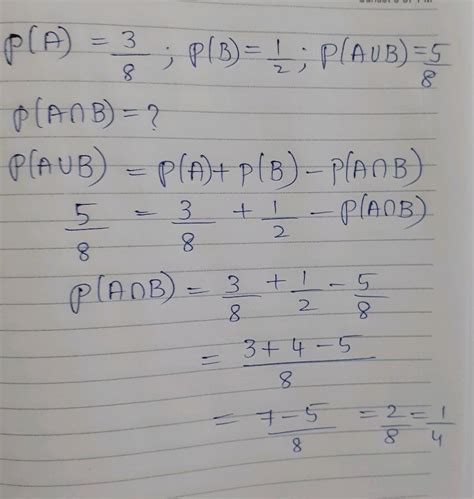 P(A) = 3/8 ; P(B) = 1/2 ; P(A∪B) = 5/8
P(A∩B) = ?
P(A∪B) = P(A) + P(B) - P(A∩B)
5/8 = 3/8 + 1/2 - P(A∩B)
P(A∩B) = 3/8 + 1/2 - 5/8
= 3+4-5/8
= 7-5/8 = 2/8 = 1/4